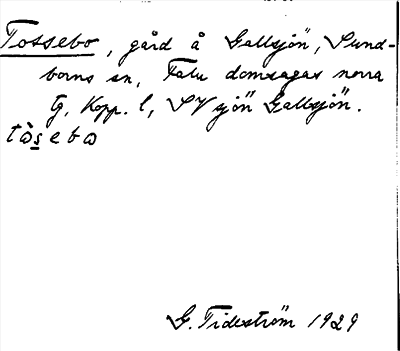 Tossebo, gård å Gallsjön, Sund-
borns sn, Falu domsagas norra
tg, Kopp. l, SV sjön Gallsjön.
tòsebo
G. Tideström 1929